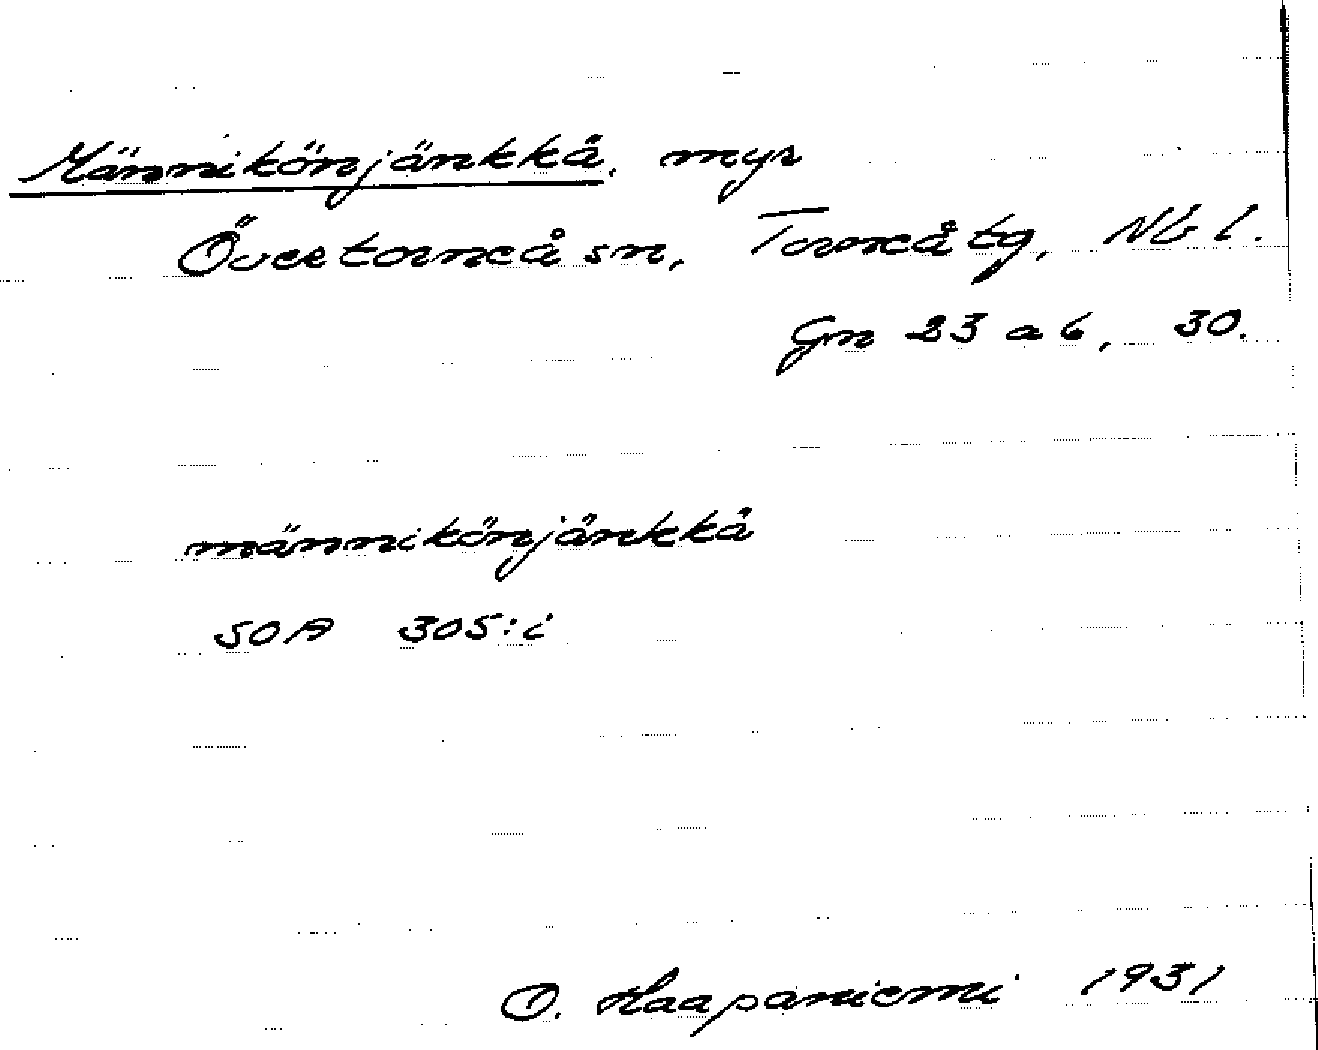 Männikönjänkkä, myr
Övertorneå sn, Torneå tg, Nb l.
Gn 23 a b, 30.
männikönjänkkä
SOA 305:i
O. Haapaniemi 1931